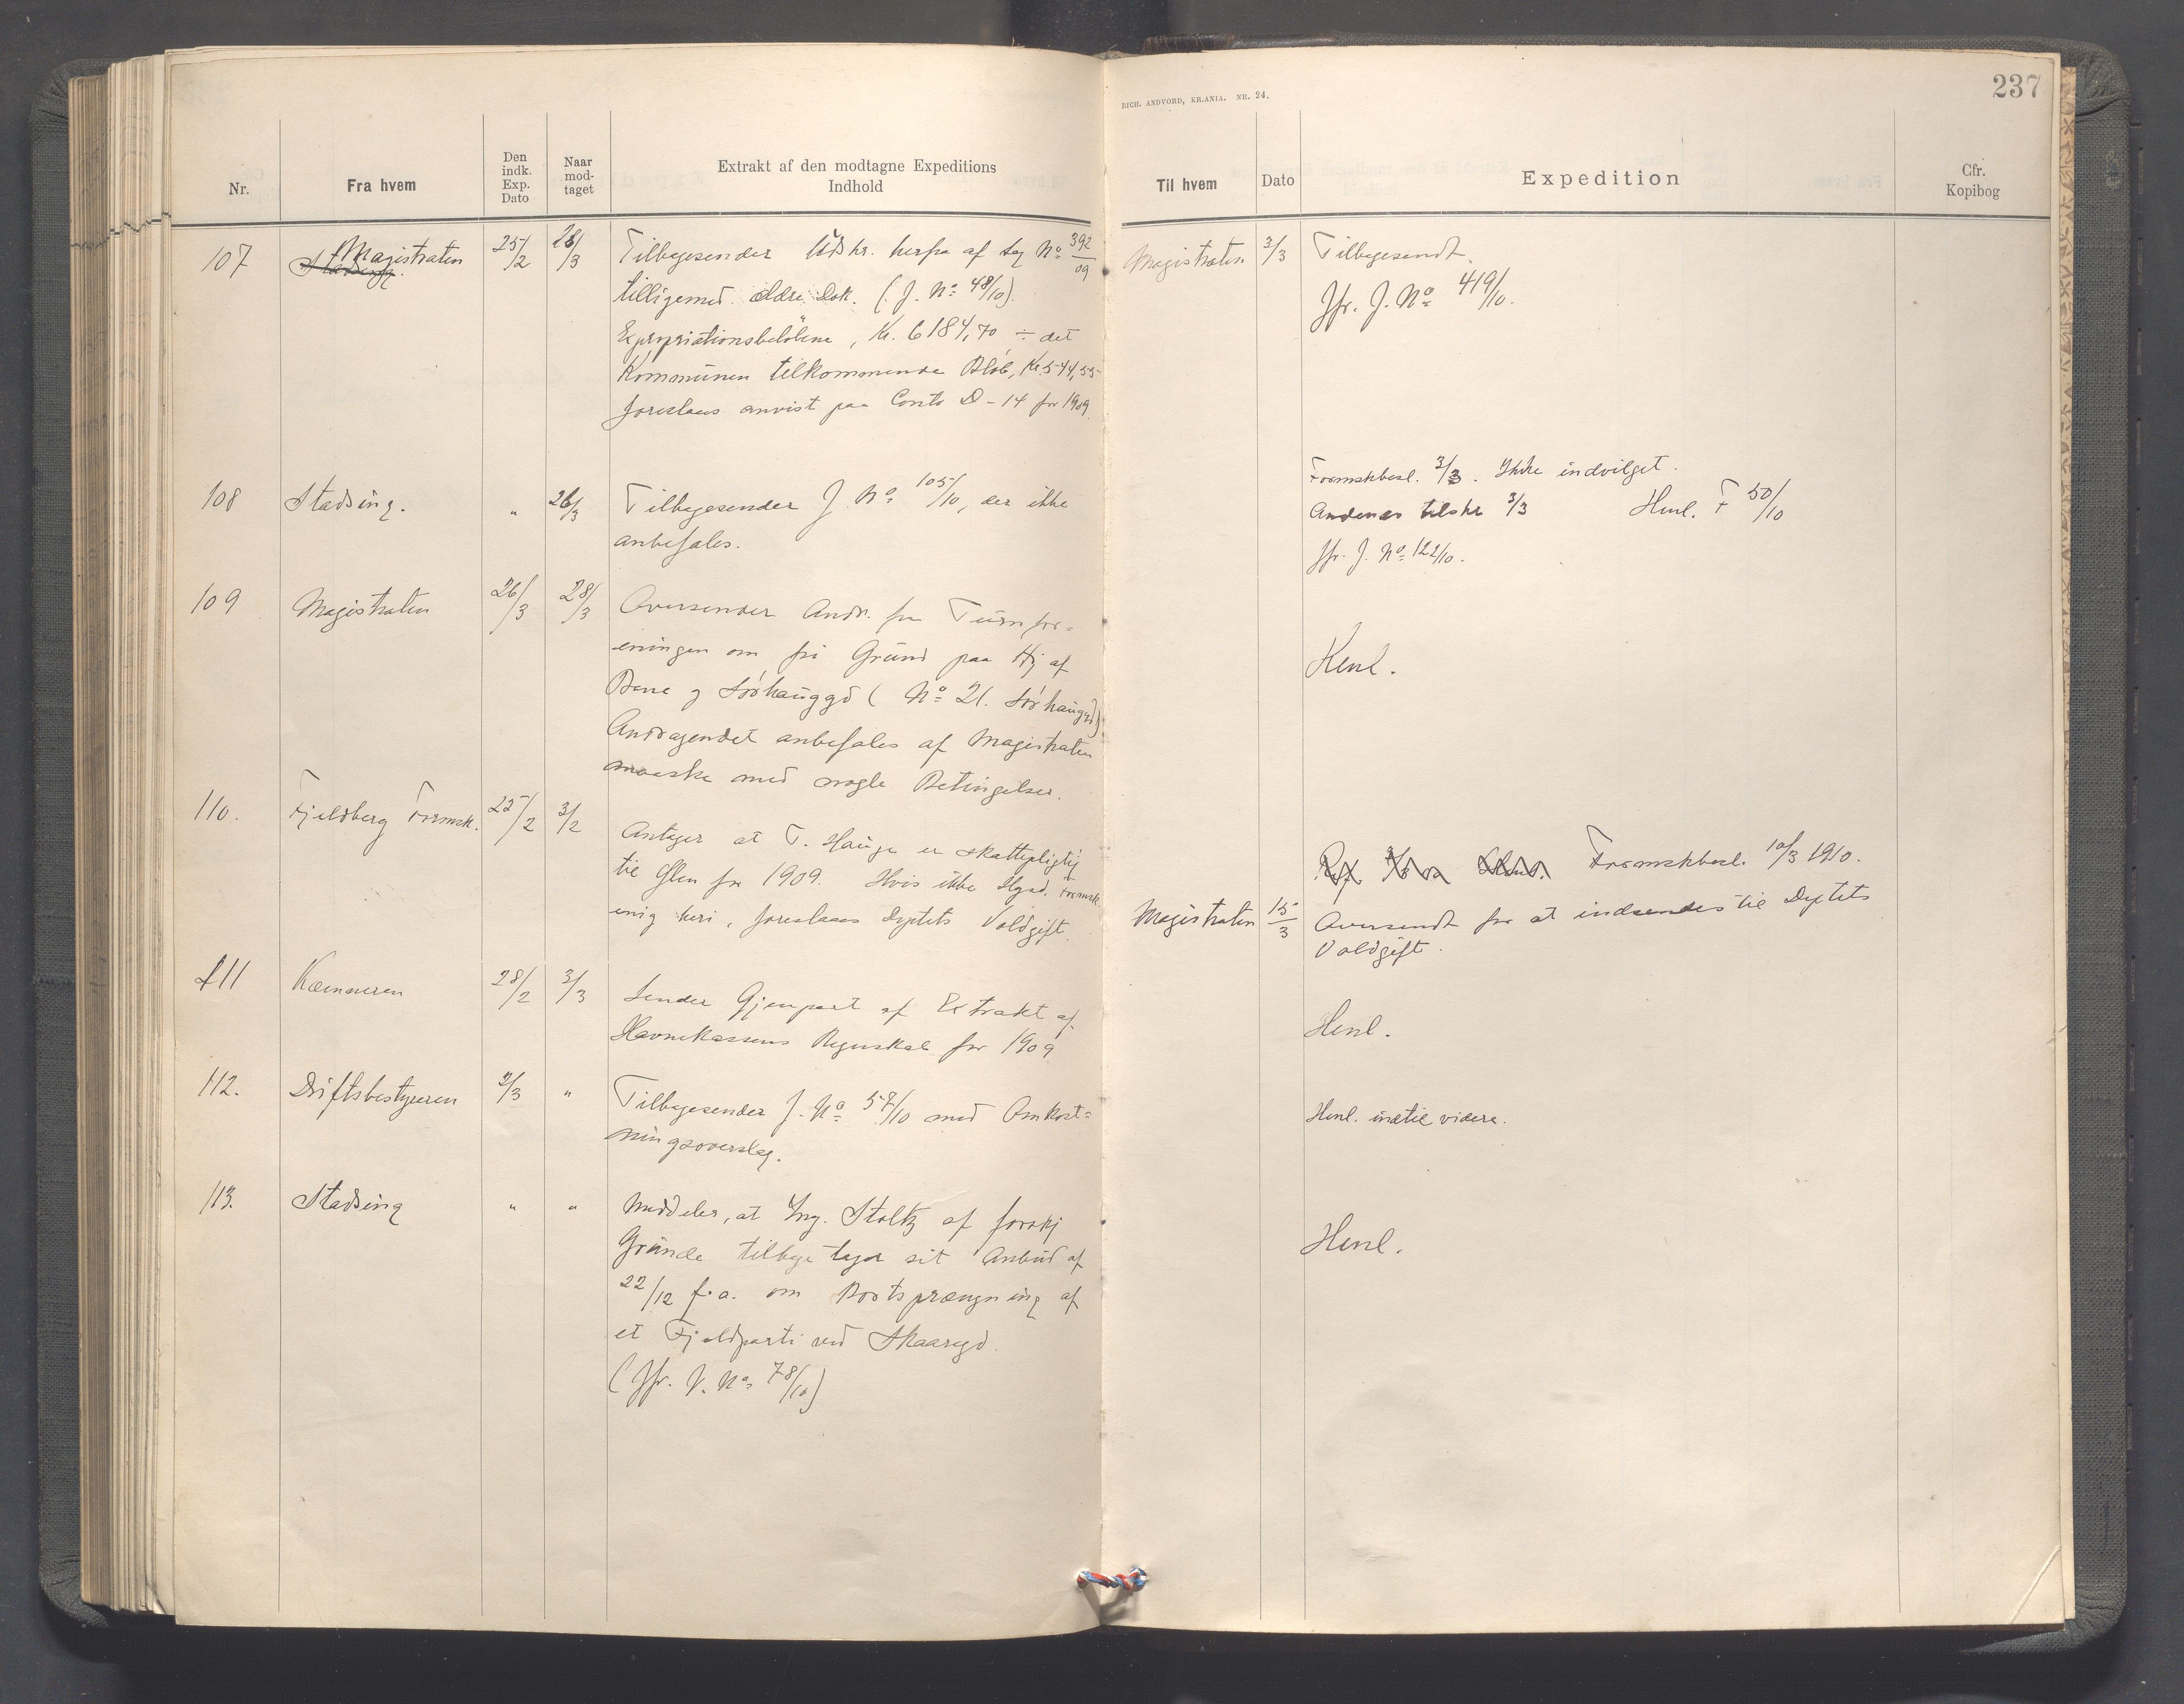 RICH. ANDVORD, KR.ANIA. NR. 24.
237
Nr.
Fra hvem
Den indk. Exp. Dato
Naar mod-taget
Extrakt af den modtagne Expeditions Indhold
Til hvem
Dato
Expedition
Cfr. Kopibog
107 Stadsing. Magistraten 25/2 28/3 Tilbagesender Udskr. herfra af Sag No 392/09
tilligemed ældre Dok. (J. No 48/10).
Expropriationsbeløbene, Kr. 6184,70 ÷ det
Kommunen tilkommende Bløb, Kr. 544,55
foreslaas anvist paa Conto D - 14 for 1909.
Magistraten 3/3 Tilbagesendt.
Jfr. J. No 419/10.
108 Stadsing. " 26/3 Tilbagesender J. No 105/10, der ikke
anbefales.
Formskbesl. 3/3. Ikke indvilget.
tilskr 3/3 Henl. F 50/10
Jfr. J. No 122/10.
109 Magistraten 26/3 28/3 Oversender Andr. fra Turnfor-
eningen om fri Grund paa Hj af
og Sørhauggd (No 21. Sørhauggd).
Andragendet anbefales af Magistraten
maaske med nogle Betingelser.
Henl.
110. Fjeldberg Formsk. 25/2 3/2 Antager at T. Hauge er skattepligtig
til for 1909. Hvis ikke Hgsd. Formsk.
enig heri, foreslaaes Dptets Voldgift.
Formskbesl. 10/3 1910.
Magistraten 15/3 Oversendt for at indsendes til Dptets
Voldgift.
111 Kæmneren 28/2 3/3 Sender Gjenpart af Extrakt af
Havnekassens Regnskab for 1909
Henl.
112. Driftsbestyreren 2/3 " Tilbagesender J. No 57/10 med Omkost-
ningsoverslag.
Henl. indtil videre.
113. Stadsing " " Meddeler, at Ing. Stoltz af forskj
Grunde tilbagetager sit Anbud af
22/12 f.a. om Bortsprængning af
et Fjeldparti ved Skaaregd.
(Jfr. J. No 78/10)
Henl.